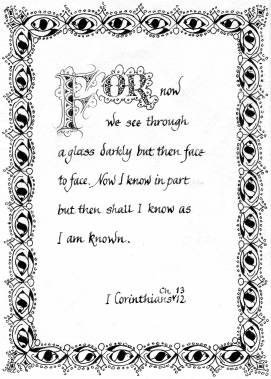 FOR now
we see through
a glass darkly but then face
to face. Now I know in part
but then shall I know as
I am known.
I Corinthians Ch. 13 v 12